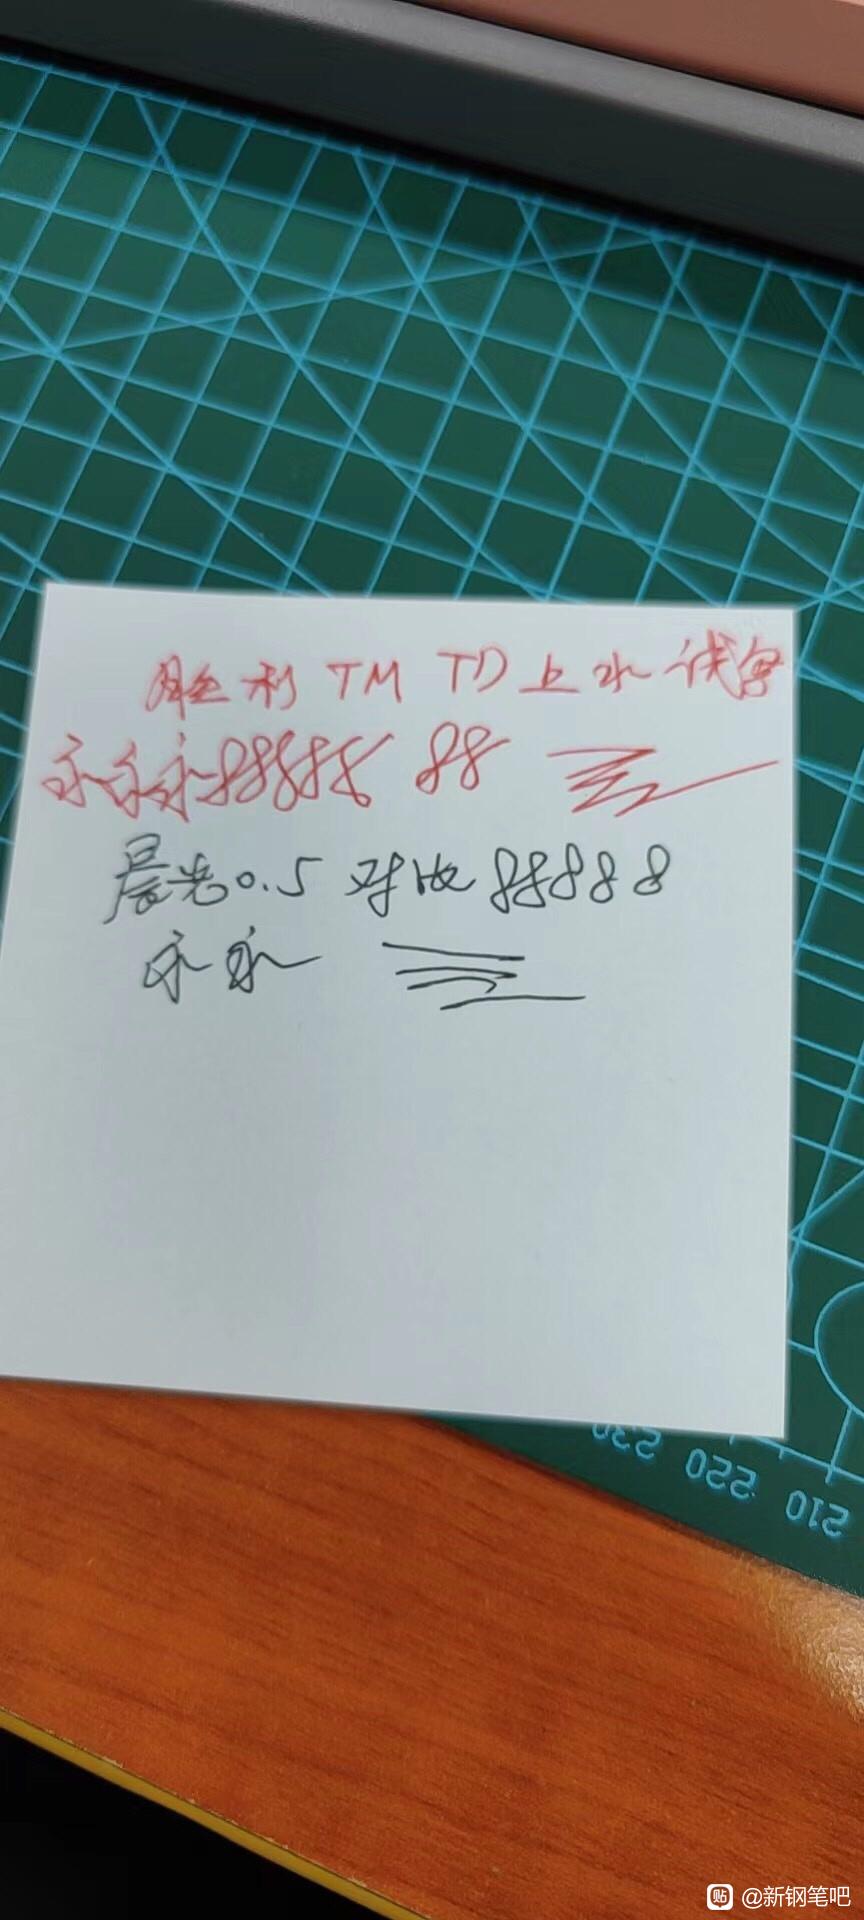 胜利 TM TD 上水 试写
永永永888888 88
晨光0.5 对比 88888
永永
230 220 210
@新钢笔吧